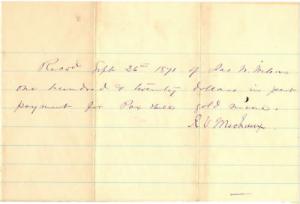 Recd Sept 26th 1891 of Jas. W. Wilson
one hundred & twenty dollars in part
payment for Pax Hill gold mine.
R. V. Michaux.